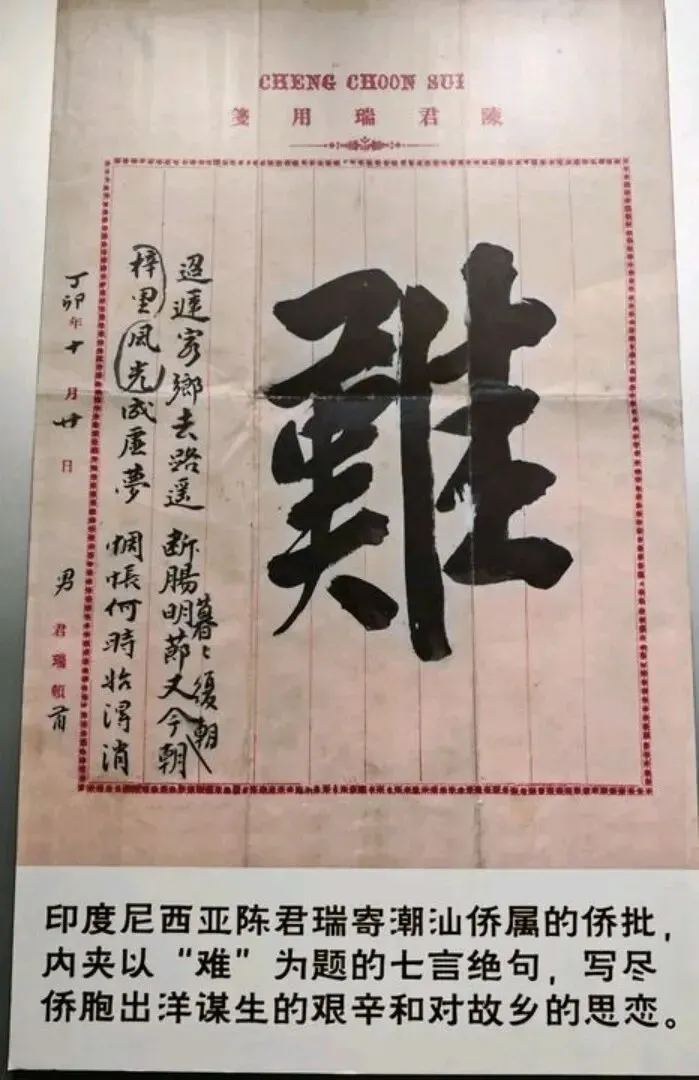 CHENG CHOON SUI
陳君瑞用箋
難
迢遞客鄉去路遥 断腸明節又今朝
暮〻復朝
梓里風光成虛夢 惆悵何時始得消
丁卯年十月廿日 男君瑞頓首
印度尼西亚陈君瑞寄潮汕侨属的侨批，
内夹以“难”为题的七言绝句，写尽
侨胞出洋谋生的艰辛和对故乡的思恋。